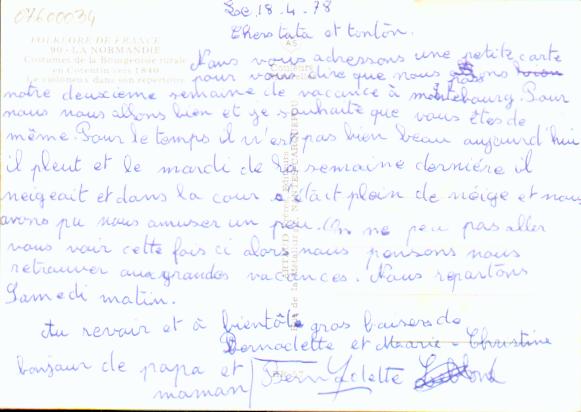 07600034
Le 18-4-78
Chers tata et tontôn.
FOLKLORE DE FRANCE
90 - LA NORMANDIE
Costumes de la Bourgeoise rurale
en Cotentin vers 1840
Le violoneux dans son répertoire
Nous vous adressons une petite carte
pour vous dire que nous passons
notre deuxième semaine de vacance à montebourg. Pour
nous nous allons bien et je souhaite que vous êtes de
même. Pour le temps il n'est pas bien beau aujourd'hui
il pleut et le mardi de la semaine dernière il
neigeait et dans la cour s'était plein de neige et nous
avons pu nous amuser un peu. On ne peu pas aller
vous voir cette fois ci alors nous pensons nous
retrouver aux grandes vacances. Nous repartons
Samedi matin.
Au revoir et à bientôt gros baisers de
Bernadette et Marie-Christine
bonjour de papa et
maman
Bernadette